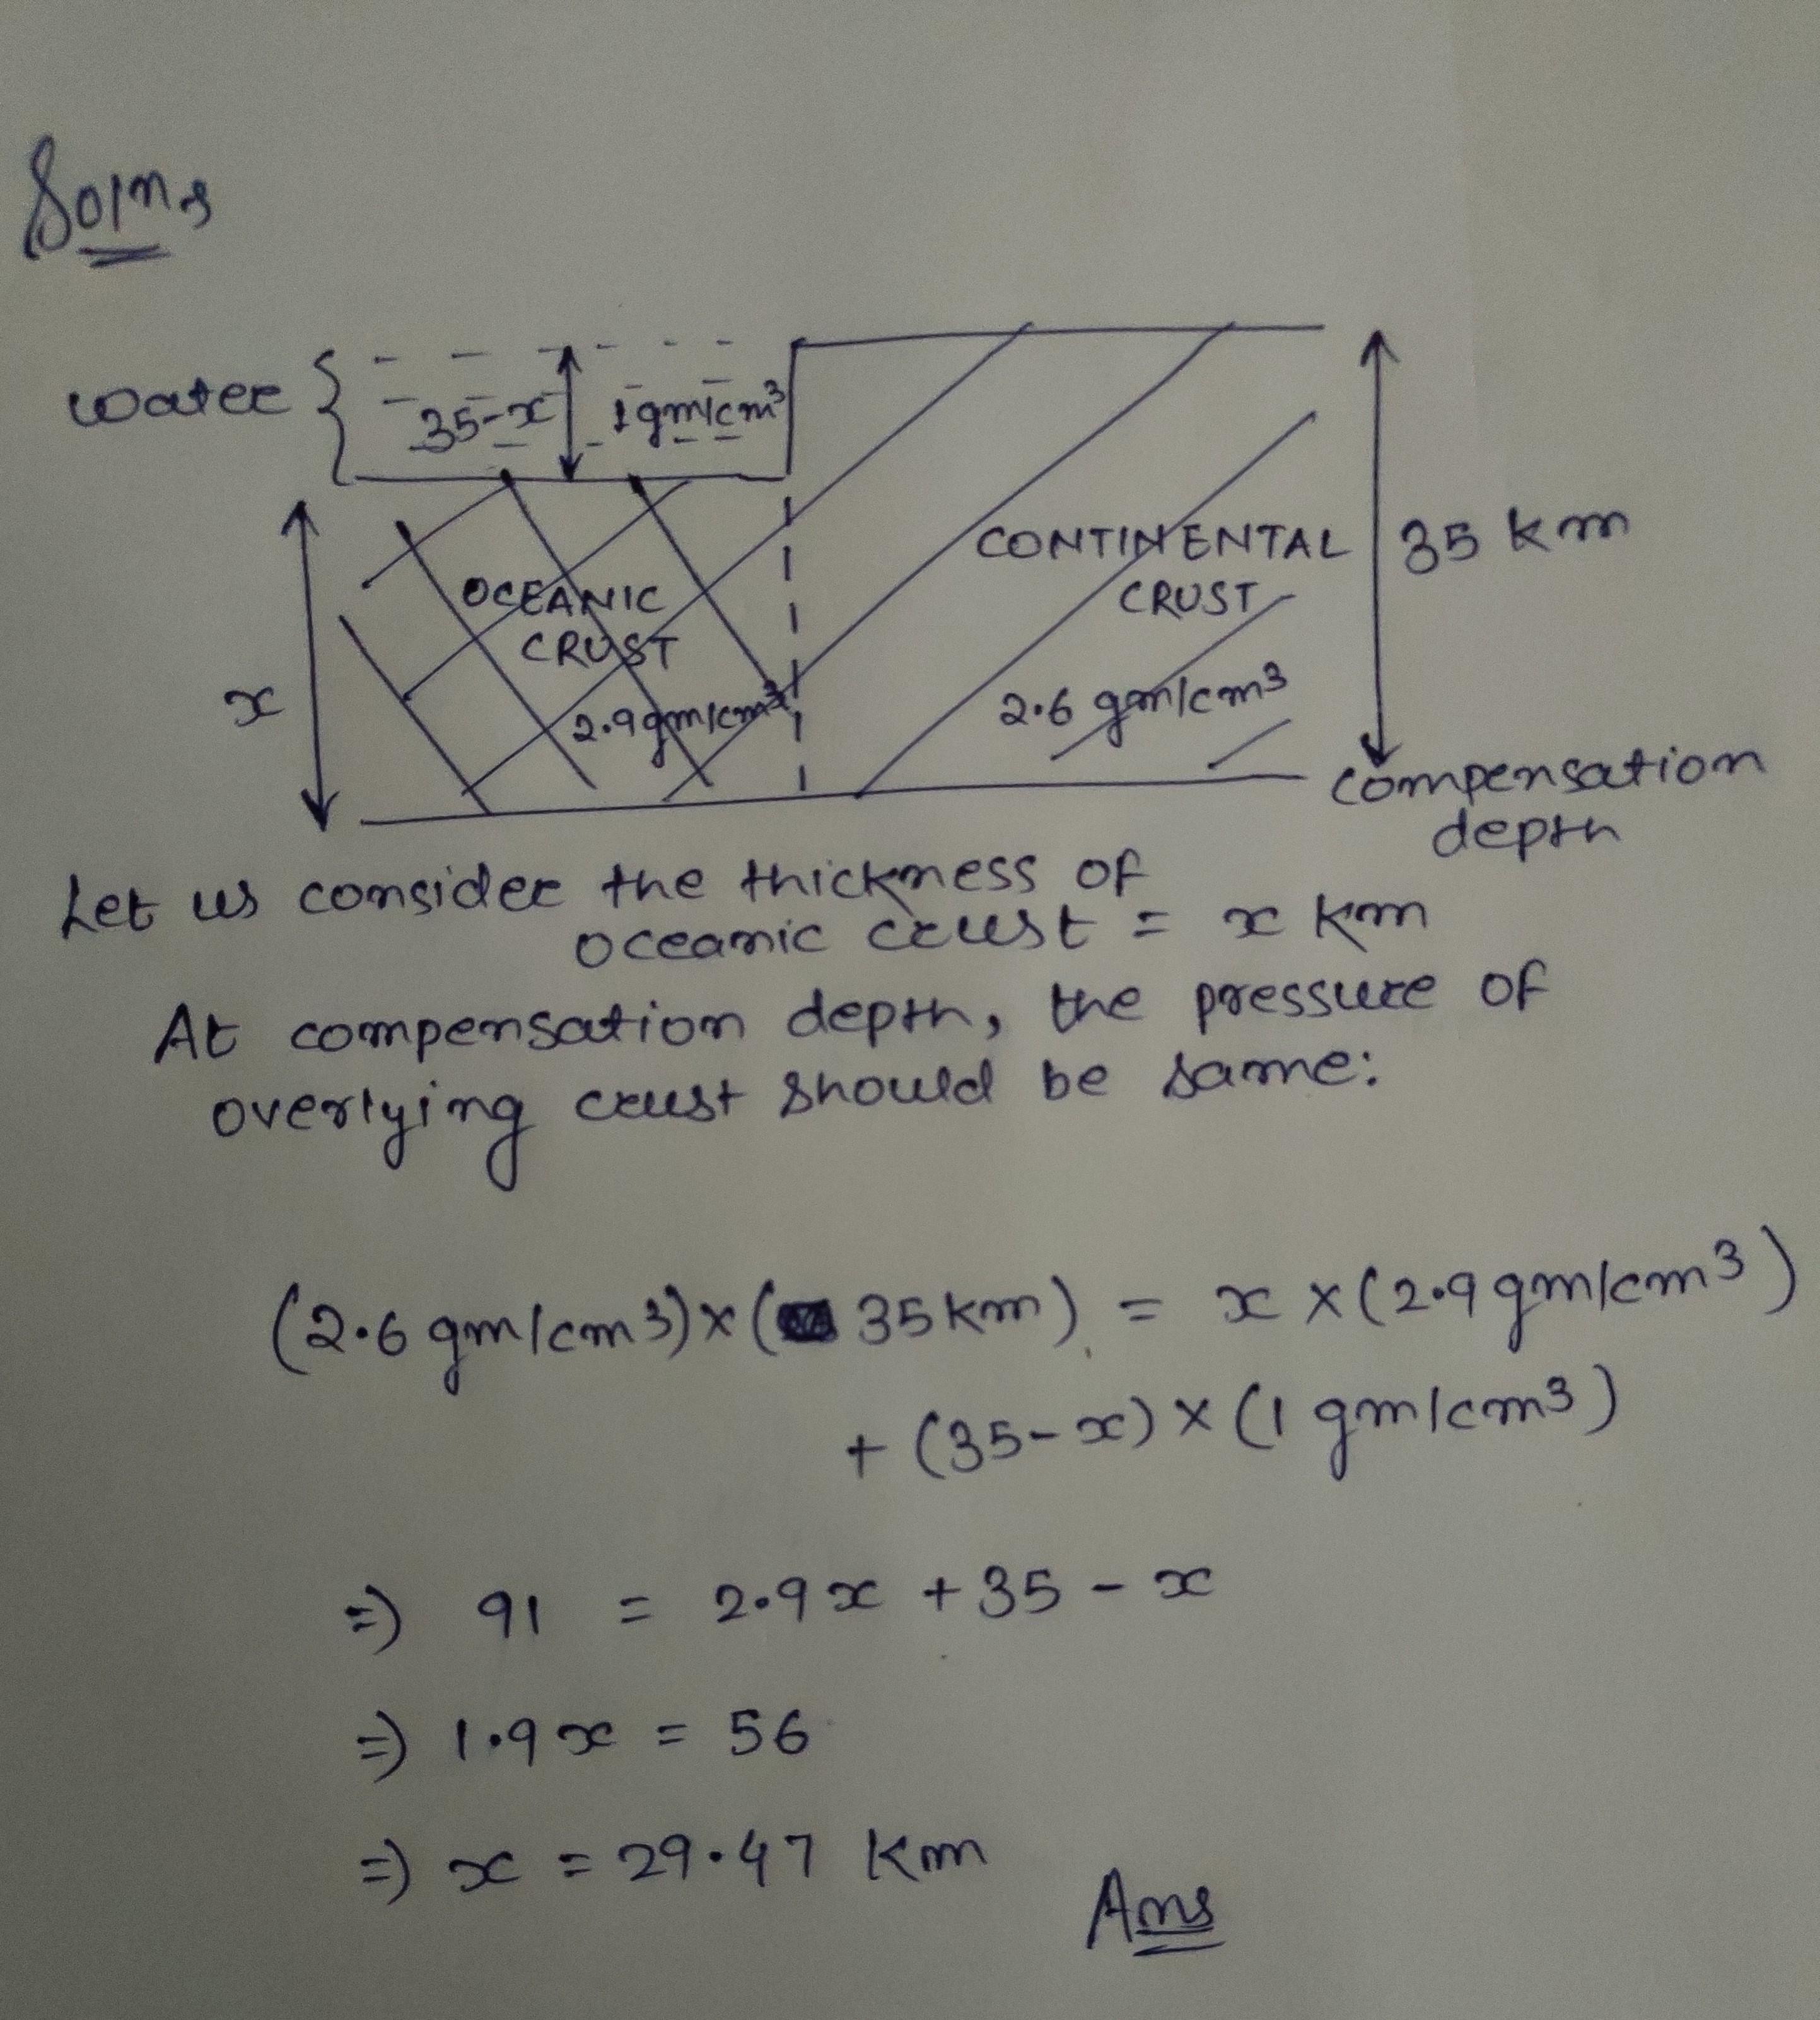 Soln:
water { 35-x 1 gm/cm³
OCEANIC
CRUST
2.9 gm/cm³
x
CONTINENTAL
CRUST
2.6 gm/cm³
35 km
compensation
depth
Let us consider the thickness of
oceanic crust = x km
At compensation depth, the pressure of
overlying crust should be same:
(2.6 gm/cm³) × (35 km) = x × (2.9 gm/cm³)
+ (35-x) × (1 gm/cm³)
=) 91 = 2.9x + 35 - x
=) 1.9x = 56
=) x = 29.47 km
Ans